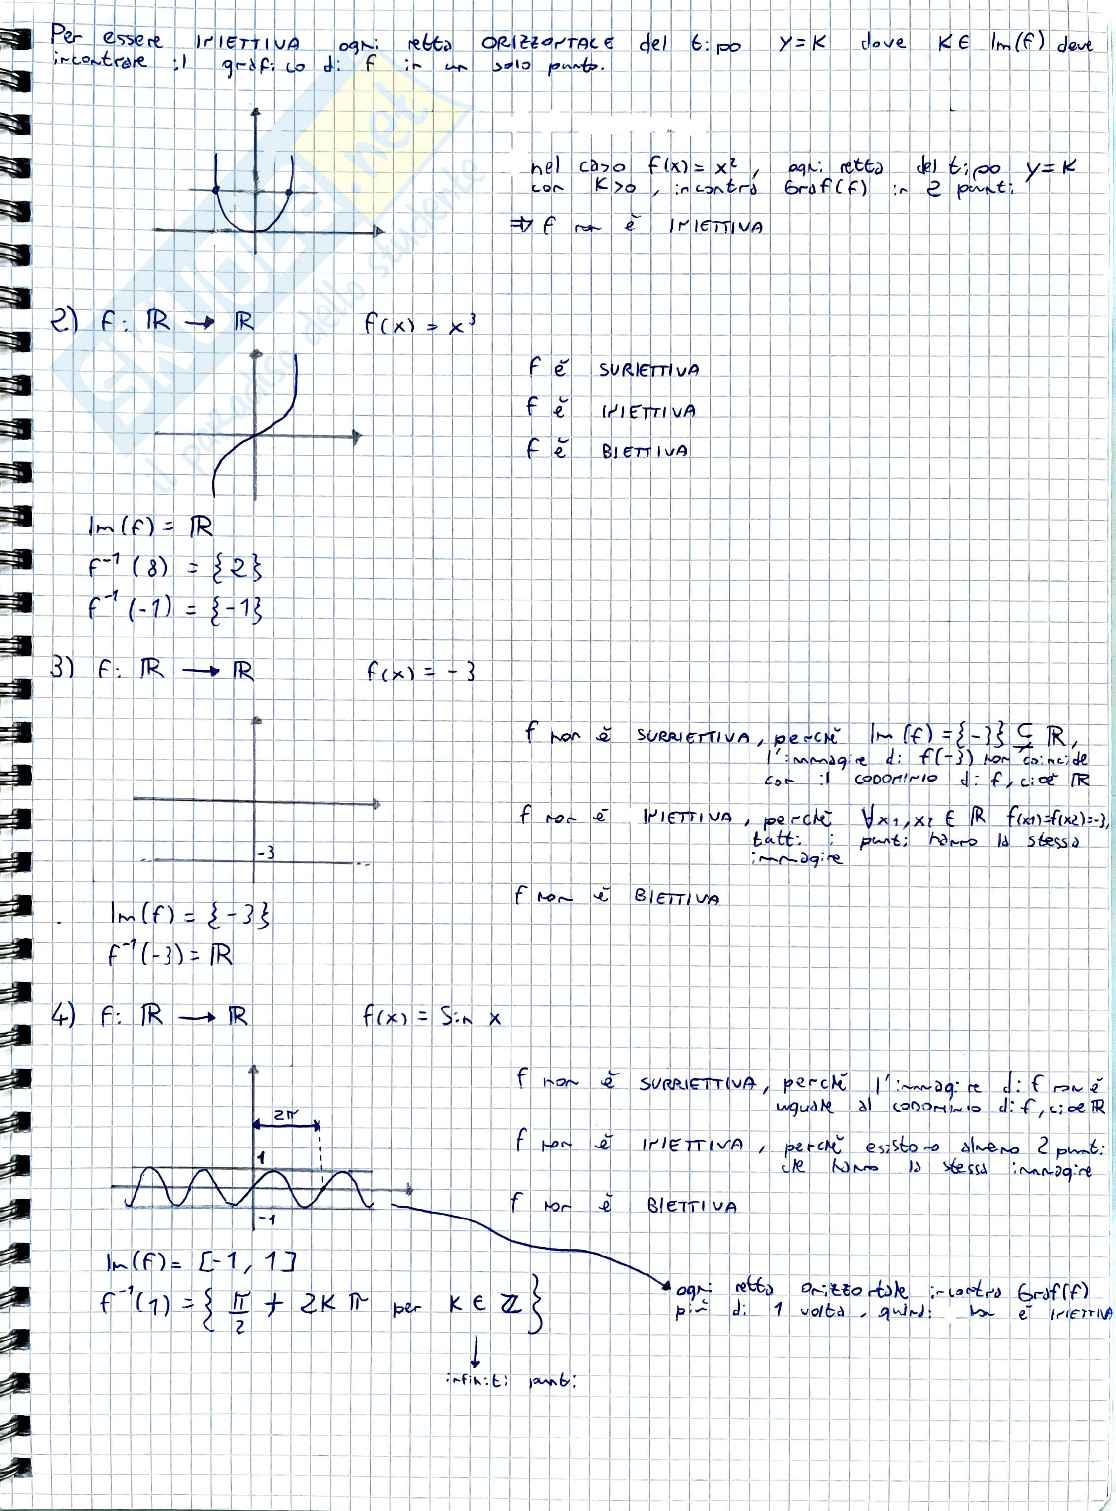 Per essere INIETTIVA ogni retta ORIZZONTALE del tipo y=K dove K∈ Im(f) deve
incontrare il grafico di f in un solo punto.
nel caso f(x)=x², ogni retta del tipo y=K
con K>0, incontra Graf(f) in 2 punti
⇒ f non è INIETTIVA
2) f: ℝ → ℝ f(x) = x³
f è SURIETTIVA
f è INIETTIVA
f è BIETTIVA
Im(f) = ℝ
f⁻¹(8) = {2}
f⁻¹(-1) = {-1}
3) f: ℝ → ℝ f(x) = -3
f non è SURRIETTIVA, perchè Im(f)={-3} ⊊ ℝ,
l'immagine di f(-3) non coincide
con il CODOMINIO di f, cioè ℝ
f non è INIETTIVA, perchè ∀x₁,x₂ ∈ ℝ f(x₁)=f(x₂)=-3,
tutti i punti hanno la stessa
immagine
-3
f non è BIETTIVA
Im(f) = {-3}
f⁻¹(-3) = ℝ
4) f: ℝ → ℝ f(x) = Sin x
f non è SURRIETTIVA, perchè l'immagine di f non è
uguale al CODOMINIO di f, cioè ℝ
2π
f non è INIETTIVA, perchè esistono almeno 2 punti
che hanno la stessa immagine
1
f non è BIETTIVA
-1
Im(f) = [-1, 1]
ogni retta orizzontale incontra Graf(f)
più di 1 volta, quindi non è INIETTIVA
f⁻¹(1) = {π/2 + 2Kπ per K ∈ ℤ}
infiniti punti
SKUOLA.net
il paradiso dello studente